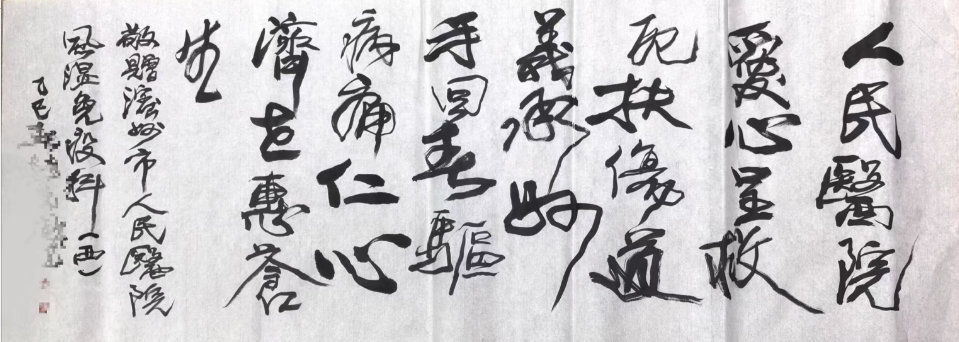 人民醫院
愛心呈救
死扶傷道
義承妙
手回春驅
病痛仁心
濟世惠蒼
生
敬贈州市人民醫院
風湿免疫科(西)